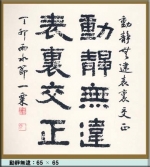 動靜無違表裏交正
動靜無違
表裏交正
丁卯雨水節 一東
動靜無違 : 65 × 65